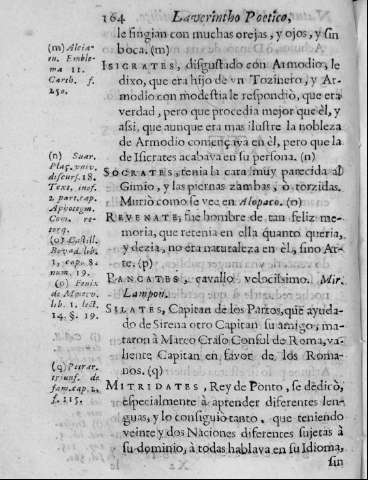 164 Laverintho Poetico,
le fingian con muchas orejas, y ojos, y sin
boca. (m)
(m) Alciatu.
Emblema
11.
Carth. f.
250.
ISICRATES, disgustado con Armodio, le
dixo, que era hijo de vn Tozinero, y Armodio
con modestia le respondiò, que era
verdad, pero que procedia mejor que èl, y
assi, que aunque era mas ilustre la nobleza
de Armodio començava en èl, pero que la
de Isicrates acabava en su persona. (n)
(n) Suar.
Plaç. univ.
discurs. 18.
Text. inof.
2. part. cap.
Apotegm.
Com. retorq.
SOCRATES, tenia la cara muy parecida al
Gimio, y las piernas zambas, ò torzidas.
Muriò como se vee en Alopaco. (o)
REVENATE, fue hombre de tan feliz memoria,
que retenia en ella quanto queria,
y dezia, no era naturaleza en èl, sino Arte.
(p)
(o) Castill.
Bovad. lib.
1. cap. 8.
num. 19.
(o) Fenix
lib. 1. lect.
14. §. 19.
PANGATES, cavallo velocissimo. Mir.
Lampon.
SILATES, Capitan de los Partos, que ayudado
de Sirena otro Capitan su amigo, mataron
à Marco Craso Consul de Roma, valiente
Capitan en favor de los Romanos.
(q)
(q) Petrar.
triunf. de
fam. cap. 2.
f. 115.
MITRIDATES, Rey de Ponto, se dedicò,
especialmente à aprender diferentes lenguas,
y lo consiguiò tanto, que teniendo
veinte y dos Naciones diferentes sujetas à
su dominio, à todas hablava en su Idioma,
sin